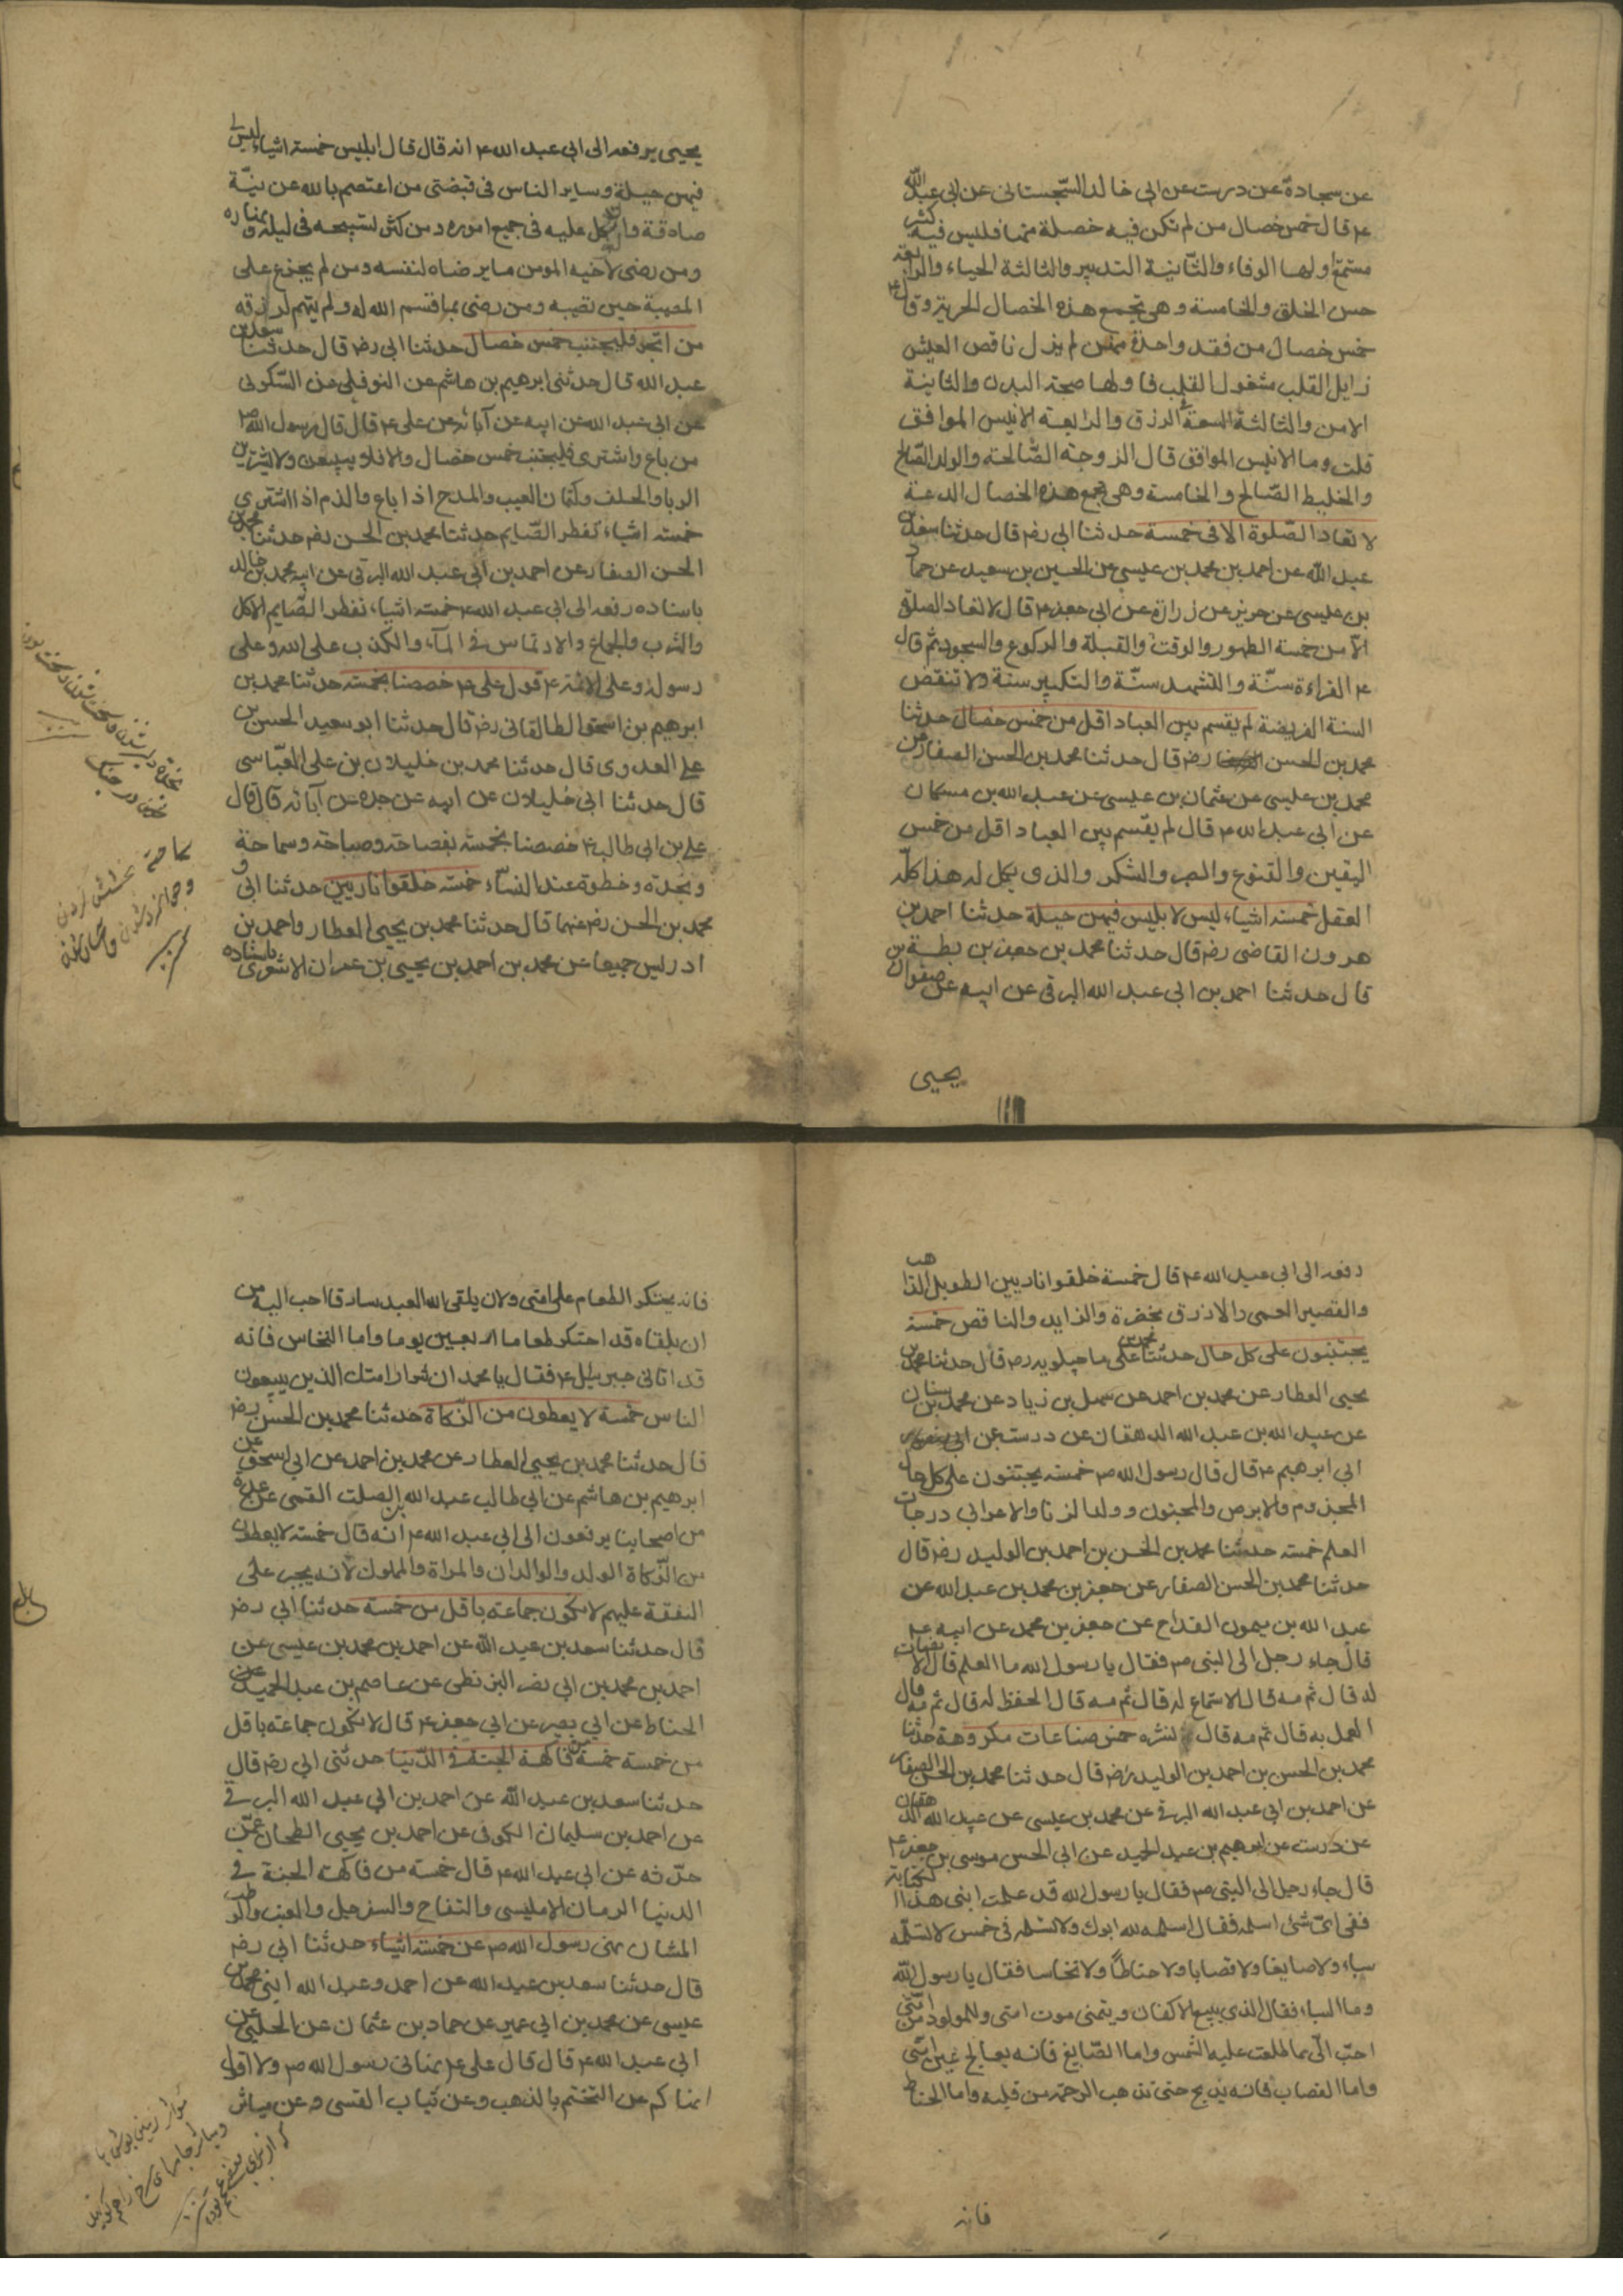 عن سجادة عن درست عن ابي خالد السجستاني عن ابي عبد الله
ع قال خمس خصال من لم تكن فيه خصلة منها فليس فيه كثير
مستمتع اولها الوفاء والثانية التدبير والثالثة الحياء والرابعة
حسن الخلق والخامسة وهي تجمع هذه الخصال الحرية وقال ع
خمس خصال من فقد واحدة منهن لم يزل ناقص العيش
زايل القلب مشغول القلب فاولها صحة البدن والثانية
الامن والثالثة السعة في الرزق والرابعة الانيس الموافق
قلت وما الانيس الموافق قال الزوجة الصالحة والولد الصالح
والخليط الصالح والخامسة وهي تجمع هذه الخصال الدعة
لا تعاد الصلوة الا في خمسة حدثنا ابي رض قال حدثنا سعد بن
عبد الله عن احمد بن محمد بن عيسى عن الحسين بن سعيد عن حماد
بن عيسى عن حريز عن زرارة عن ابي جعفر ع قال لا تعاد الصلوة
الا من خمسة الطهور والوقت والقبلة والركوع والسجود ثم قال
ع القراءة سنة والتشهد سنة والتكبير سنة ولا تنقض
السنة الفريضة لم يقسم بين العباد اقل من خمس خصال حدثنا
محمد بن الحسن رض قال حدثنا محمد بن الحسن الصفار عن
محمد بن عيسى عن عثمان بن عيسى عن عبد الله بن مسكان
عن ابي عبد الله ع قال لم يقسم بين العباد اقل من خمس
اليقين والقنوع والصبر والشكر والذي يكمل له هذا كله
العقل خمسة اشياء ليس لابليس فيهن حيلة حدثنا احمد بن
هرون القاضي رض قال حدثنا محمد بن جعفر بن بطة
قال حدثنا احمد بن ابي عبد الله البرقي عن ابيه عن صفوان بن
يحيى
يحيى يرفعه الى ابي عبد الله ع انه قال قال ابليس خمسة اشياء ليس لي
فيهن حيلة وساير الناس في قبضتي من اعتصم بالله عن نية
صادقة واتكل عليه في جميع اموره ومن كثر تسبيحه في ليله ونهاره
ومن رضي لاخيه المومن ما يرضاه لنفسه ومن لم يجزع على
المصيبة حين تصيبه ومن رضي بما قسم الله له ولم يهتم لرزقه
من اتجر فليجتنب خمس خصال حدثنا ابي رض قال حدثنا سعد بن
عبد الله قال حدثني ابرهيم بن هاشم عن النوفلي عن السكوني
عن ابي عبد الله عن ابيه عن آبائه عن علي ع قال قال رسول الله ص
من باع واشترى فليجتنب خمس خصال والا فلا يبيعن ولا يشترين
الربا والحلف وكتمان العيب والمدح اذا باع والذم اذا اشترى
خمسة اشياء تفطر الصايم حدثنا محمد بن الحسن رض حدثنا محمد بن
الحسن الصفار عن احمد بن ابي عبد الله البرقي عن ابيه محمد بن خالد
باسناده رفعه الى ابي عبد الله ع خمسة اشياء تفطر الصايم الاكل
والشرب والجماع والارتماس في المآء والكذب على الله وعلى
رسوله وعلى الائمة ع قول علي ع خصصنا بخمسة حدثنا محمد بن
ابرهيم بن اسحق الطالقاني رض قال حدثنا ابو سعيد الحسن بن
علي العدوي قال حدثنا محمد بن خليلان بن علي العباسي
قال حدثنا ابي خليلان عن ابيه عن جده عن آبائه قال قال
علي بن ابي طالب ع خصصنا بخمسة بفصاحة وصباحة وسماحة
ونجدة وحظوة عند النساء خمسة خلقوا ناريين حدثنا ابي و
محمد بن الحسن رض عنهما قال حدثنا محمد بن يحيى العطار واحمد بن
ادريس جميعا عن محمد بن احمد بن يحيى بن عمران الاشعري باسناده
رفعه الى ابي عبد الله ع قال خمسة خلقوا ناريين الطويل الذاهب
والقصير القمي والازرق بخضرة والزايد والناقص خمسة
يجتنبون على كل حال حدثنا محمد بن علي ماجيلويه رض قال حدثنا محمد بن
يحيى العطار عن محمد بن احمد عن سهل بن زياد عن محمد بن سنان
عن عبيد الله بن عبد الله الدهقان عن درست عن
ابي ابرهيم ع قال قال رسول الله ص خمسة يجتنبون على كل حال
المجذوم والابرص والمجنون وولد الزنا والاعرابي درجات
العلم خمسة حدثنا محمد بن الحسن بن احمد بن الوليد رض قال
حدثنا محمد بن الحسن الصفار عن جعفر بن محمد بن عبد الله عن
عبد الله بن ميمون القداح عن جعفر بن محمد عن ابيه ع
قال جاء رجل الى النبي ص فقال يا رسول الله ما العلم قال الانصات
له قال ثم مه قال الاستماع له قال ثم مه قال الحفظ له قال ثم مه قال
العمل به قال ثم مه قال نشره خمس صناعات مكروهة حدثنا
محمد بن الحسن بن احمد بن الوليد رض قال حدثنا محمد بن الحسن الصفار
عن احمد بن ابي عبد الله البرقي عن محمد بن عيسى عن عبيد الله الدهقان
عن درست عن ابرهيم بن عبد الحميد عن ابي الحسن موسى بن جعفر ع
قال جاء رجل الى النبي ص فقال يا رسول الله قد علمت ابني هذا الكتابة
ففي اي شئ اسلمه فقال اسلمه لله ابوك ولا تسلمه في خمس لا تسلمه
سباء ولا صايغا ولا قصابا ولا حناطا ولا نخاسا فقال يا رسول الله
وما السباء فقال الذي يبيع الاكفان ويتمنى موت امتي وللمولود من امتي
احب الي مما طلعت عليه الشمس واما الصايغ فانه يعالج غبن امتي
واما القصاب فانه يذبح حتى تذهب الرحمة من قلبه واما الحناط
فانه
فانه يحتكر الطعام على امتي ولان يلقى الله العبد سارقا احب اليه من
ان يلقاه قد احتكر طعاما اربعين يوما واما النخاس فانه
قد اتاني جبرئيل ع فقال يا محمد ان شرار امتك الذين يبيعون
الناس خمسة لا يعطون من الزكاة حدثنا محمد بن الحسن رض
قال حدثنا محمد بن يحيى العطار عن محمد بن احمد عن ابي اسحق
ابرهيم بن هاشم عن ابي طالب عبد الله بن الصلت القمي عن عدة
من اصحابنا يرفعون الى ابي عبد الله ع انه قال خمسة لا يعطون
من الزكاة الولد والوالدان والمراة والمملوك لانه يجبر على
النفقة عليهم لا تكون جماعة باقل من خمسة حدثنا ابي رض
قال حدثنا سعد بن عبد الله عن احمد بن محمد بن عيسى عن
احمد بن محمد بن ابي نصر البزنطي عن عاصم بن عبد الحميد عن
الحناط عن ابي بصير عن ابي جعفر ع قال لا تكون جماعة باقل
من خمسة خمسة من فاكهة الجنة في الدنيا حدثني ابي رض قال
حدثنا سعد بن عبد الله عن احمد بن ابي عبد الله البرقي
عن احمد بن سليمان الكوفي عن احمد بن يحيى الطحان عمن
حدثه عن ابي عبد الله ع قال خمسة من فاكهة الجنة في
الدنيا الرمان الامليسي والتفاح والسفرجل والعنب والرطب
المشان نهى رسول الله ص عن خمسة اشياء حدثنا ابي رض
قال حدثنا سعد بن عبد الله عن احمد وعبد الله ابني محمد بن
عيسى عن محمد بن ابي عمير عن حماد بن عثمان عن الحلبي عن
ابي عبد الله ع قال قال علي ع نهاني رسول الله ص ولا اقول
نهاكم عن التختم بالذهب وعن ثياب القسي وعن مياثر